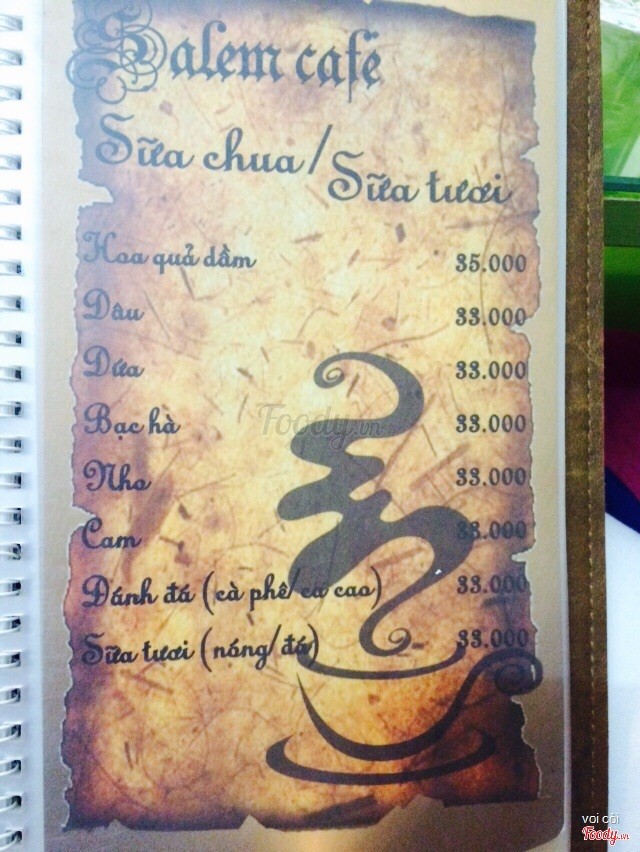 Salem café
Sữa chua/Sữa tươi
Hoa quả dầm 35.000
Dâu 33.000
Dứa 33.000
Bạc hà 33.000
Foody.vn
Nho 33.000
Cam 33.000
Đánh đá (cà phê/ca cao) 33.000
Sữa tươi (nóng/đá) 33.000
voi còi
Foody.vn